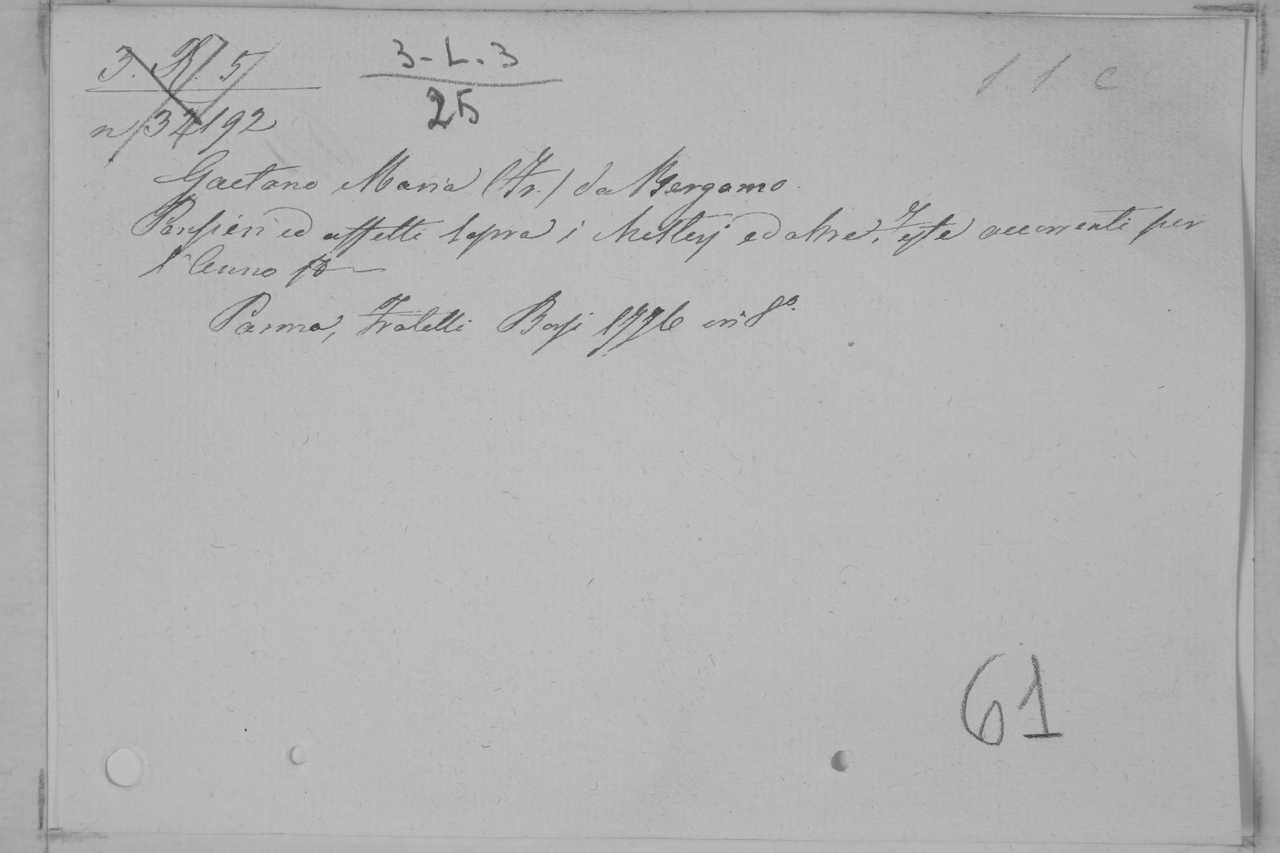 3. R. 5
n 34192
3-L.3
25
1 1 c
Gaetano Maria (Fr.) da Bergamo
Pensieri ed affetti sopra i Misterj ed altre Feste occorrenti per
l'Anno
Parma, Fratelli Borsi 1776 in 8º.
61